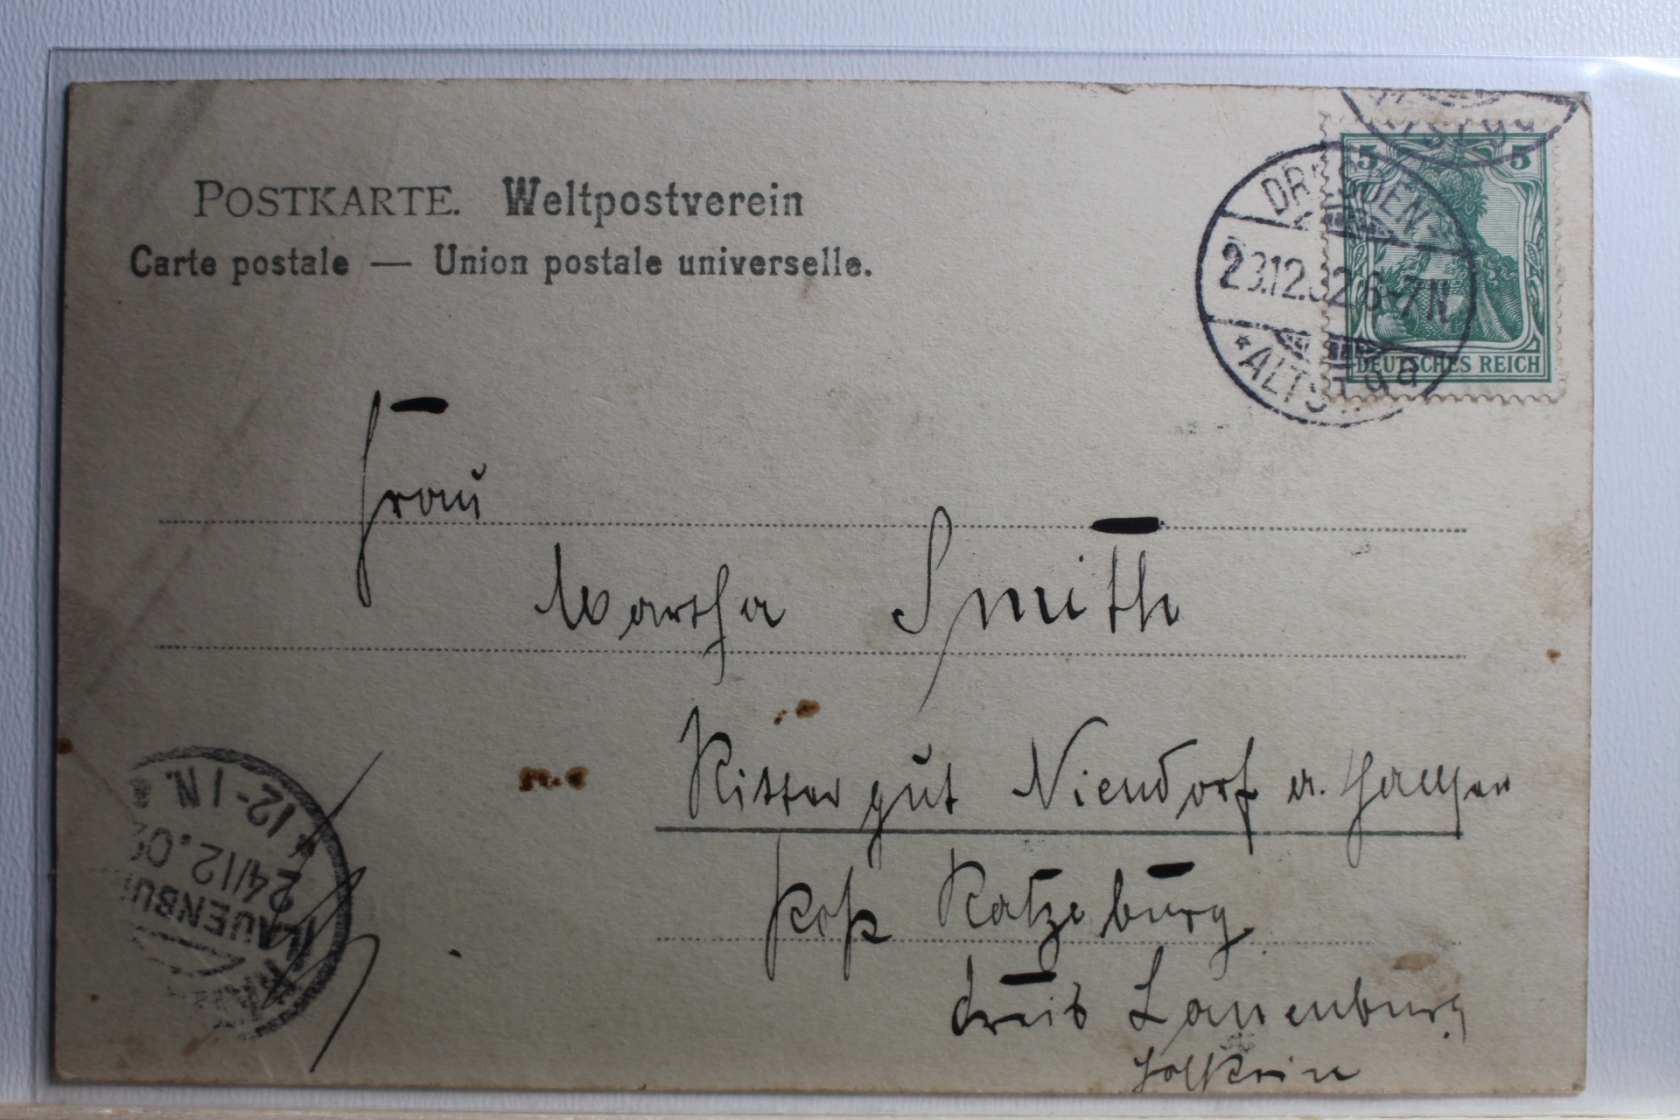 POSTKARTE. Weltpostverein
Carte postale — Union postale universelle.
5 5
DEUTSCHES REICH
DRESDEN-
23.12.02.6-7N.
*ALTST. 9 a
Frau
Martha Smith
Rittergut Niendorf a.
Post Ratzeburg
Kreis Lauenburg
Holstein
12-1N.
24/12.02
LAUENBU